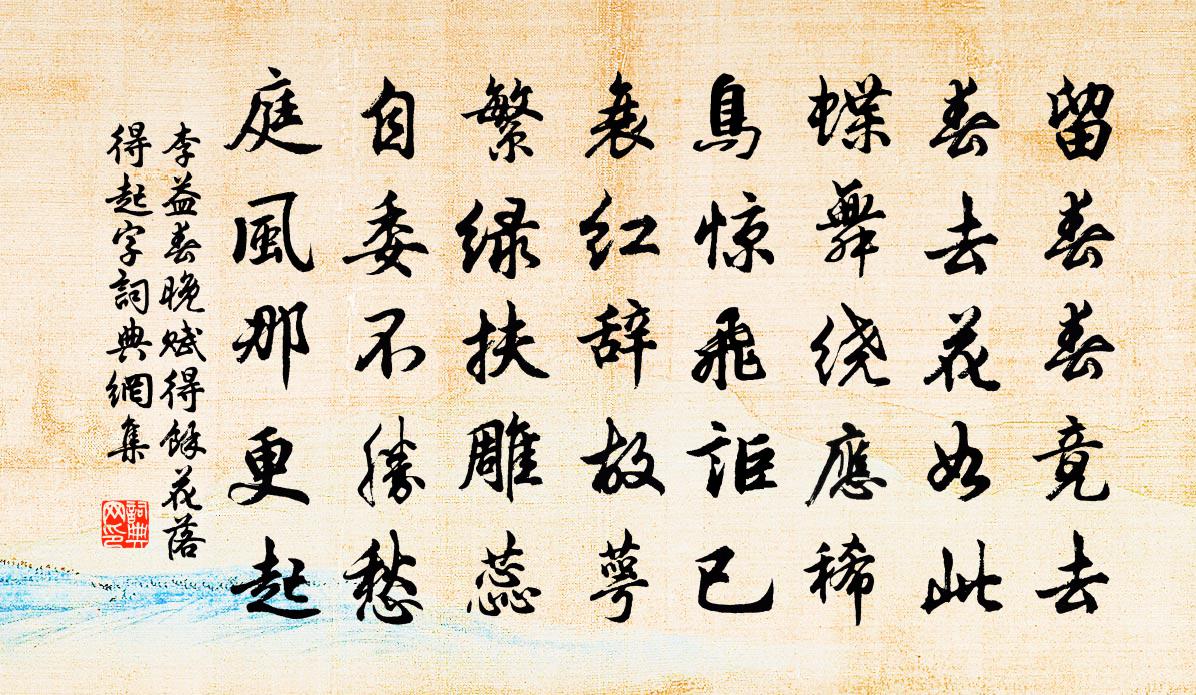 留春春竟去
春去花如此
蝶舞绕應稀
鳥惊飛詎已
衰红辞故萼
繁绿扶雕蕊
自委不勝愁
庭風那更起
李益春晚赋得餘花落
得起字詞典網集
詞典
网印